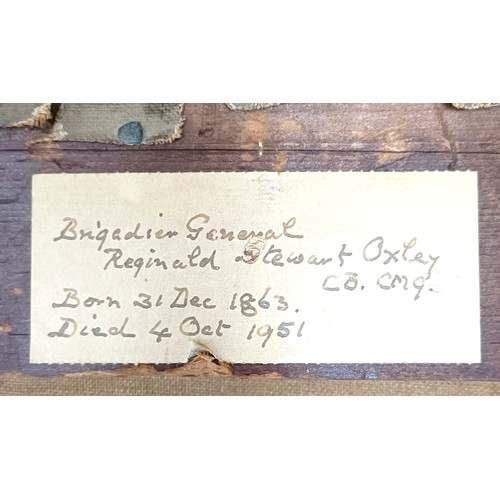 Brigadier General
Reginald Stewart Oxley
CB. CMG.
Born 31 Dec 1863.
Died 4 Oct 1951